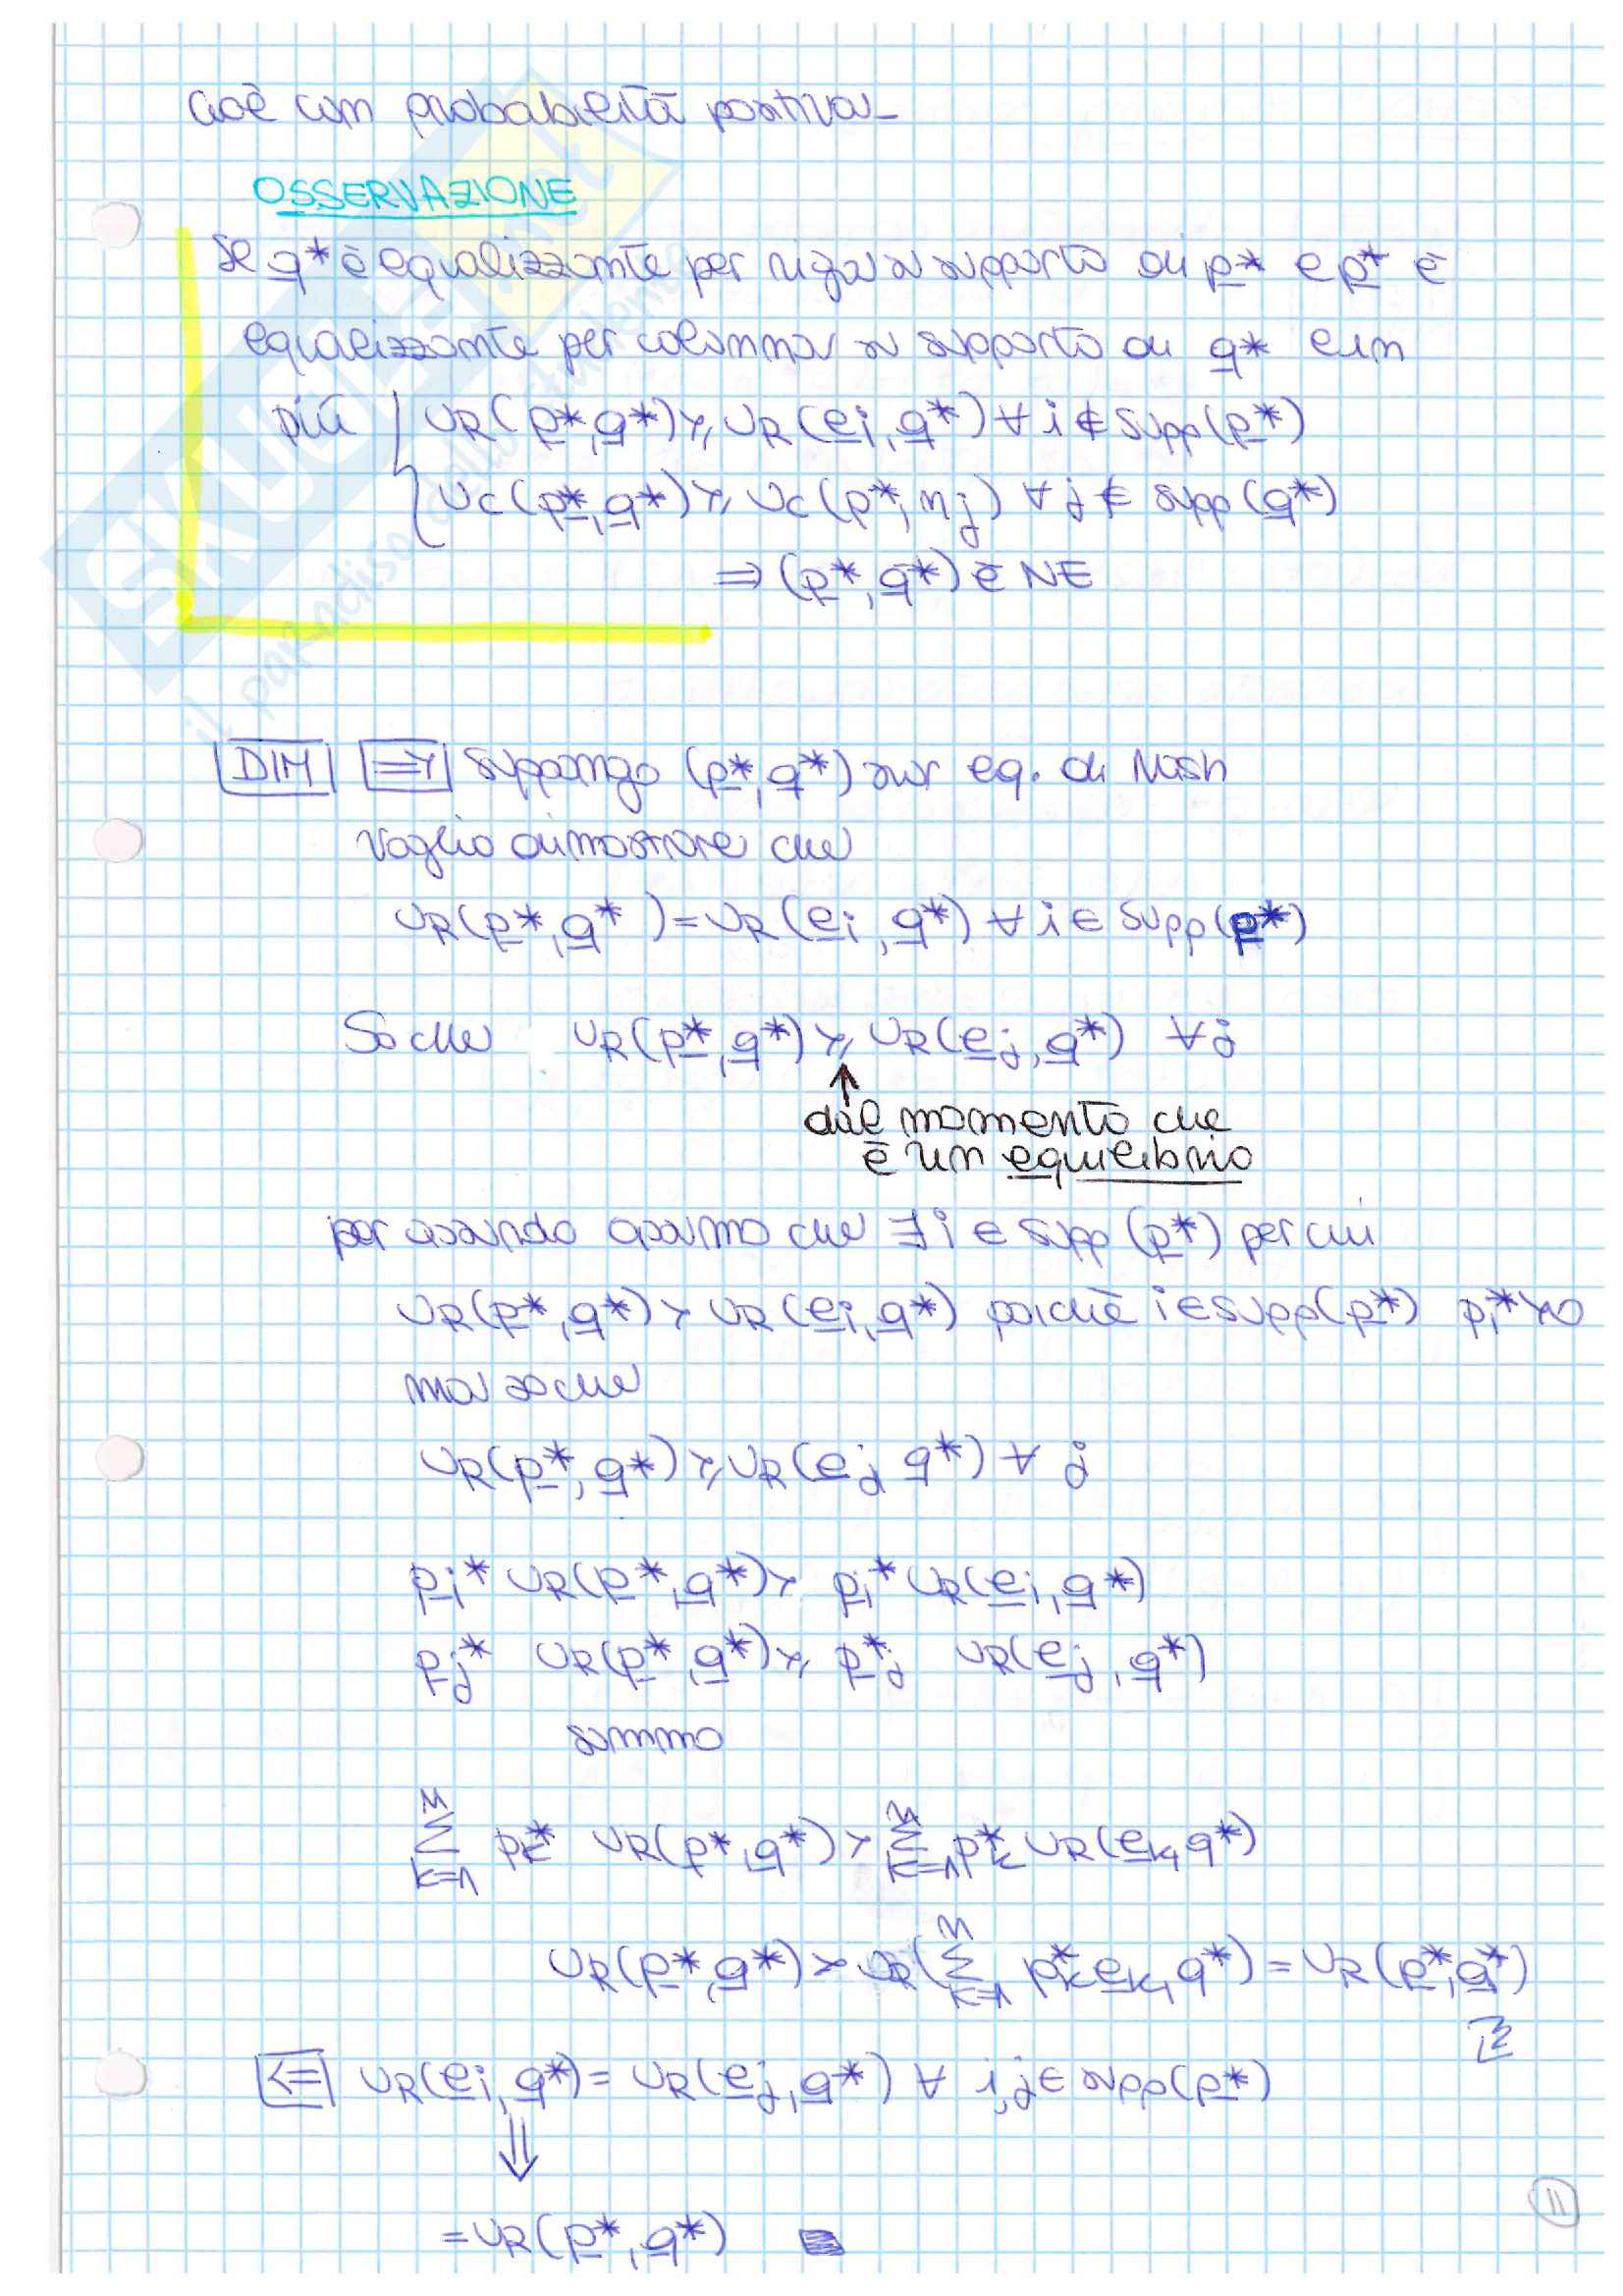 cioè con probabilità positiva_
OSSERVAZIONE
Se q* è equalizzante per riga su supporto di p* e p* è
equalizzante per colonna su supporto di q* e in
più { UR(p*,q*) ≥ UR(ei,q*) ∀ i ∉ Supp(p*)
UC(p*,q*) ≥ UC(p*,nj) ∀ j ∉ supp(q*)
⇒ (p*,q*) è NE
SKUOLA.net
il paradiso dello studente
DIM ⇒ Suppongo (p*,q*) sia eq. di Nash
Voglio dimostrare che
UR(p*,q*) = UR(ei,q*) ∀ i ∈ Supp(p*)
So che UR(p*,q*) ≥ UR(ej,q*) ∀j
↑
dal momento che
è un equilibrio
per assurdo assumo che ∃ i ∈ Supp(p*) per cui
UR(p*,q*) > UR(ei,q*) poichè i ∈ Supp(p*) pi* > 0
ma so che
UR(p*,q*) ≥ UR(ej q*) ∀ j
pi* UR(p*,q*) > pi* UR(ei,q*)
pj* UR(p*,q*) ≥ p*j UR(ej,q*)
sommo
M∑k=1 pk* UR(p*,q*) > M∑k=1 p*k UR(ek,q*)
UR(p*,q*) > UR(M∑k=1 p*k ek,q*) = UR(p*,q*)
⇐ UR(ei,q*) = UR(ej,q*) ∀ i,j ∈ supp(p*)
⇓
= UR(p*,q*)
11